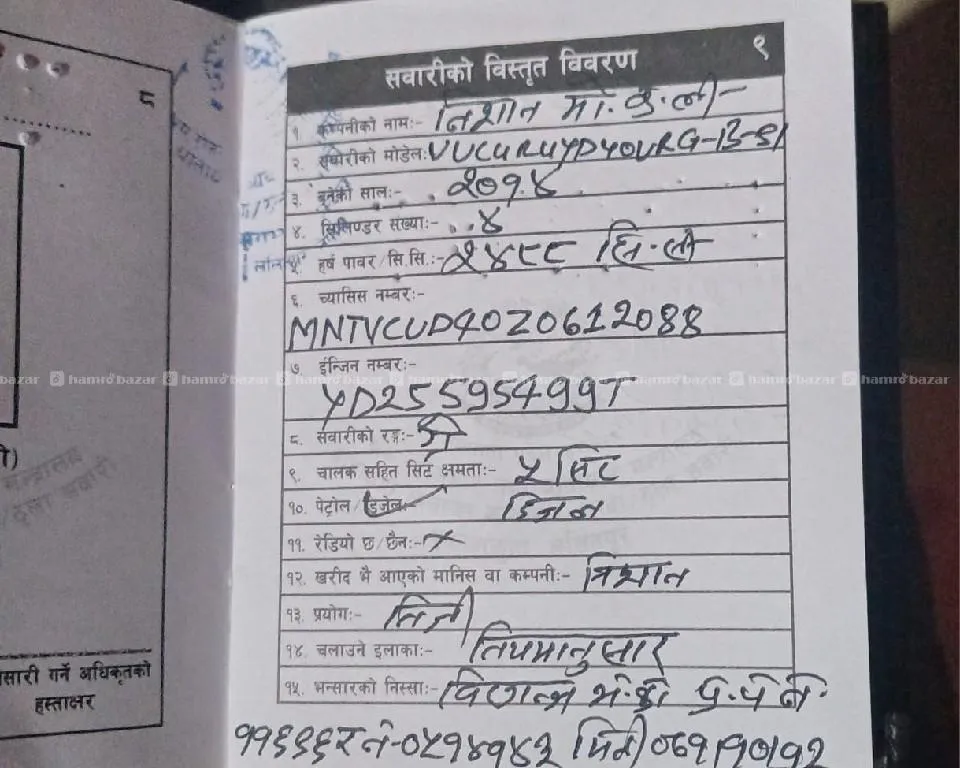 ८
सवारीको विस्तृत विवरण ९
१. कम्पनीको नाम:- निशान मो. कं. ली-
२. सवारीको मोडेल:
३. बनेको साल:- २०१४
४. सिलिण्डर संख्या:- ४
हर्ष पावर/सि.सि.:- २४८८ सि.सी
६. च्यासिस नम्बर:-
MNTVCUD40Z0612088
७. इन्जिन नम्बर:-
YD255595499T
८. सवारीको रङ्ग:-
९. चालक सहित सिट क्षमता:- ५ सिट
१०. पेट्रोल/डिजेल:- डिजल
११. रेडियो छ/छैन:- X
१२. खरीद भै आएको मानिस वा कम्पनी:- निशान
१३. प्रयोग:- निजी
१४. चलाउने इलाका:- नियमानुसार
१५. भन्सारको निस्सा:- प्र.प नं.
मिति
सारी गर्ने अधिकृतको
हस्ताक्षर
hamrobazar hamrobazar hamrobazar hamrobazar hamrobazar hamrobazar hamrobazar hamrobazar